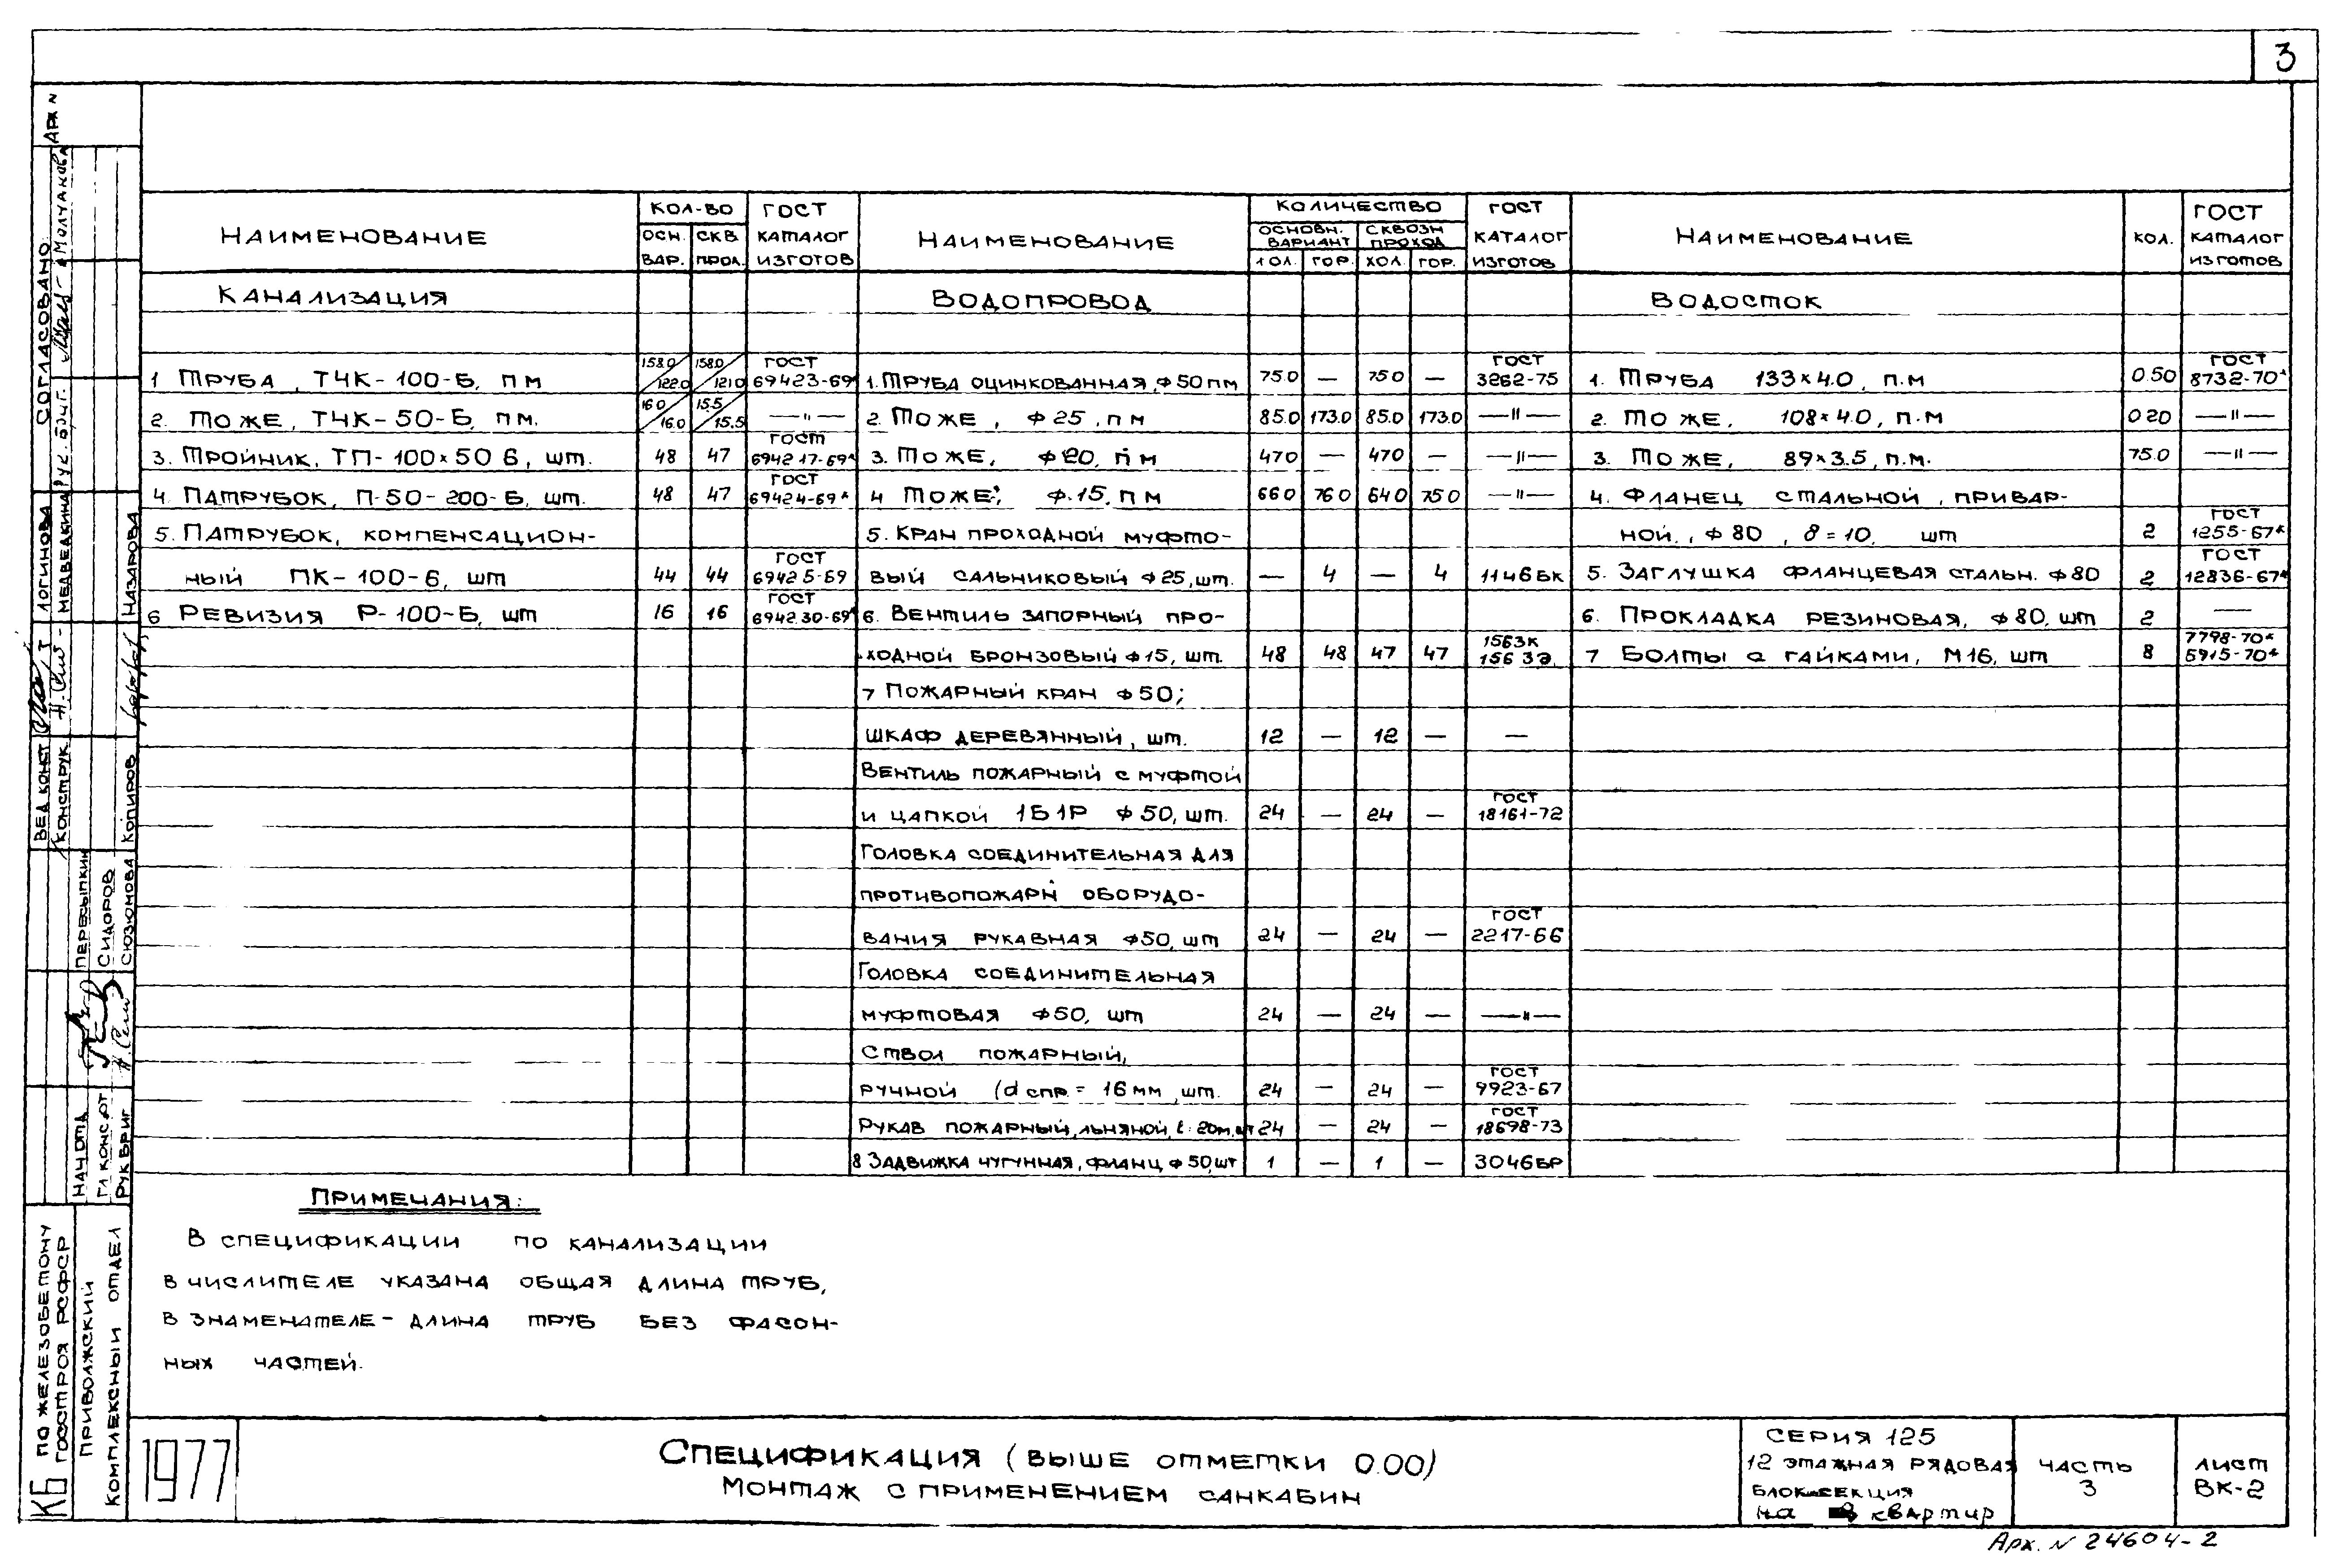 3
НАИМЕНОВАНИЕ КОЛ-ВО ОСН. ВАР. СКВ. ПРОХ. ГОСТ КАТАЛОГ ИЗГОТОВ
КАНАЛИЗАЦИЯ
1 ТРУБА, ТЧК-100-Б, ПМ 158.0/122.0 158.0/121.0 ГОСТ 69423-69
2. ТОЖЕ, ТЧК-50-Б, ПМ. 16.0/16.0 15.5/15.5 —"—
3. ТРОЙНИК, ТП-100×50 Б, ШТ. 48 47 ГОСТ 694217-69*
4. ПАТРУБОК, П-50-200-Б, ШТ. 48 47 ГОСТ 69424-69*
5. ПАТРУБОК, КОМПЕНСАЦИОН-
НЫЙ ПК-100-Б, ШТ 44 44 ГОСТ 69425-69
6 РЕВИЗИЯ Р-100-Б, ШТ 16 16 ГОСТ 694230-69*
НАИМЕНОВАНИЕ КОЛИЧЕСТВО ОСНОВН. ВАРИАНТ СКВОЗН ПРОХОД ХОЛ. ГОР. ХОЛ. ГОР. ГОСТ КАТАЛОГ ИЗГОТОВ
ВОДОПРОВОД
1. ТРУБА ОЦИНКОВАННАЯ, Ф50 ПМ 75.0 — 75.0 — ГОСТ 3262-75
2. ТОЖЕ, Ф25, ПМ 85.0 173.0 85.0 173.0 —"—
3. ТОЖЕ, Ф20, ПМ 470 — 470 — —"—
4 ТОЖЕ, Ф.15, ПМ 660 760 640 750 —"—
5. КРАН ПРОХОДНОЙ МУФТО-
ВЫЙ САЛЬНИКОВЫЙ Ф25, ШТ. — 4 — 4 11Ч6БК
6. ВЕНТИЛЬ ЗАПОРНЫЙ ПРО-
ХОДНОЙ БРОНЗОВЫЙ Ф15, ШТ. 48 48 47 47 15Б3К 15Б 3Э
7 ПОЖАРНЫЙ КРАН Ф50;
ШКАФ ДЕРЕВЯННЫЙ, ШТ. 12 — 12 — —
ВЕНТИЛЬ ПОЖАРНЫЙ С МУФТОЙ
И ЦАПКОЙ 1Б1Р Ф50, ШТ. 24 — 24 — ГОСТ 18161-72
ГОЛОВКА СОЕДИНИТЕЛЬНАЯ ДЛЯ
ПРОТИВОПОЖАРН ОБОРУДО-
ВАНИЯ РУКАВНАЯ Ф50, ШТ 24 — 24 — ГОСТ 2217-66
ГОЛОВКА СОЕДИНИТЕЛЬНАЯ
МУФТОВАЯ Ф50, ШТ 24 — 24 — —"—
СТВОЛ ПОЖАРНЫЙ,
РУЧНОЙ (d СПР. = 16 ММ, ШТ. 24 — 24 — ГОСТ 9923-67
РУКАВ ПОЖАРНЫЙ, ЛЬНЯНОЙ, ℓ: 20М, ШТ 24 — 24 — ГОСТ 18698-73
8 ЗАДВИЖКА ЧУГУННАЯ, ФЛАНЦ Ф50, ШТ 1 — 1 — 30Ч6БР
НАИМЕНОВАНИЕ КОЛ. ГОСТ КАТАЛОГ ИЗГОТОВ
ВОДОСТОК
1. ТРУБА 133×4.0, П.М 0.50 ГОСТ 8732-70*
2. ТО ЖЕ, 108×4.0, П.М 0.20 —"—
3. ТО ЖЕ, 89×3.5, П.М. 75.0 —"—
4. ФЛАНЕЦ СТАЛЬНОЙ, ПРИВАР-
НОЙ, Ф80, δ=10, ШТ 2 ГОСТ 1255-67*
5. ЗАГЛУШКА ФЛАНЦЕВАЯ СТАЛЬН. Ф80 2 ГОСТ 12836-67*
6. ПРОКЛАДКА РЕЗИНОВАЯ, Ф80, ШТ 2 —
7 БОЛТЫ С ГАЙКАМИ, М16, ШТ 8 7798-70* 5915-70*
ПРИМЕЧАНИЯ:
В СПЕЦИФИКАЦИИ ПО КАНАЛИЗАЦИИ
В ЧИСЛИТЕЛЕ УКАЗАНА ОБЩАЯ ДЛИНА ТРУБ,
В ЗНАМЕНАТЕЛЕ- ДЛИНА ТРУБ БЕЗ ФАСОН-
НЫХ ЧАСТЕЙ.
1977
СПЕЦИФИКАЦИЯ (ВЫШЕ ОТМЕТКИ 0.00)
МОНТАЖ С ПРИМЕНЕНИЕМ САНКАБИН
СЕРИЯ 125
12 ЭТАЖНАЯ РЯДОВАЯ
БЛОК-СЕКЦИЯ
на квартир
ЧАСТЬ
3
ЛИСТ
ВК-2
Арх. N 24604-2
АРХ N
СОГЛАСОВАНО:
РУК. БРИГ. МОЛЧАНОВА
ВЕД КОНСТ ЛОГИНОВА
КОНСТРУК. МЕДВЕДКИНА
КОПИРОВ НАЗАРОВА
НАЧ ОТД ПЕРЕСЫПКИН
ГЛ КОНС ОТ СИДОРОВ
РУК БРИГ СЮЗЮМОВА
КБ ПО ЖЕЛЕЗОБЕТОНУ
ГОССТРОЯ РСФСР
ПРИВОЛЖСКИЙ
КОМПЛЕКСНЫЙ ОТДЕЛ